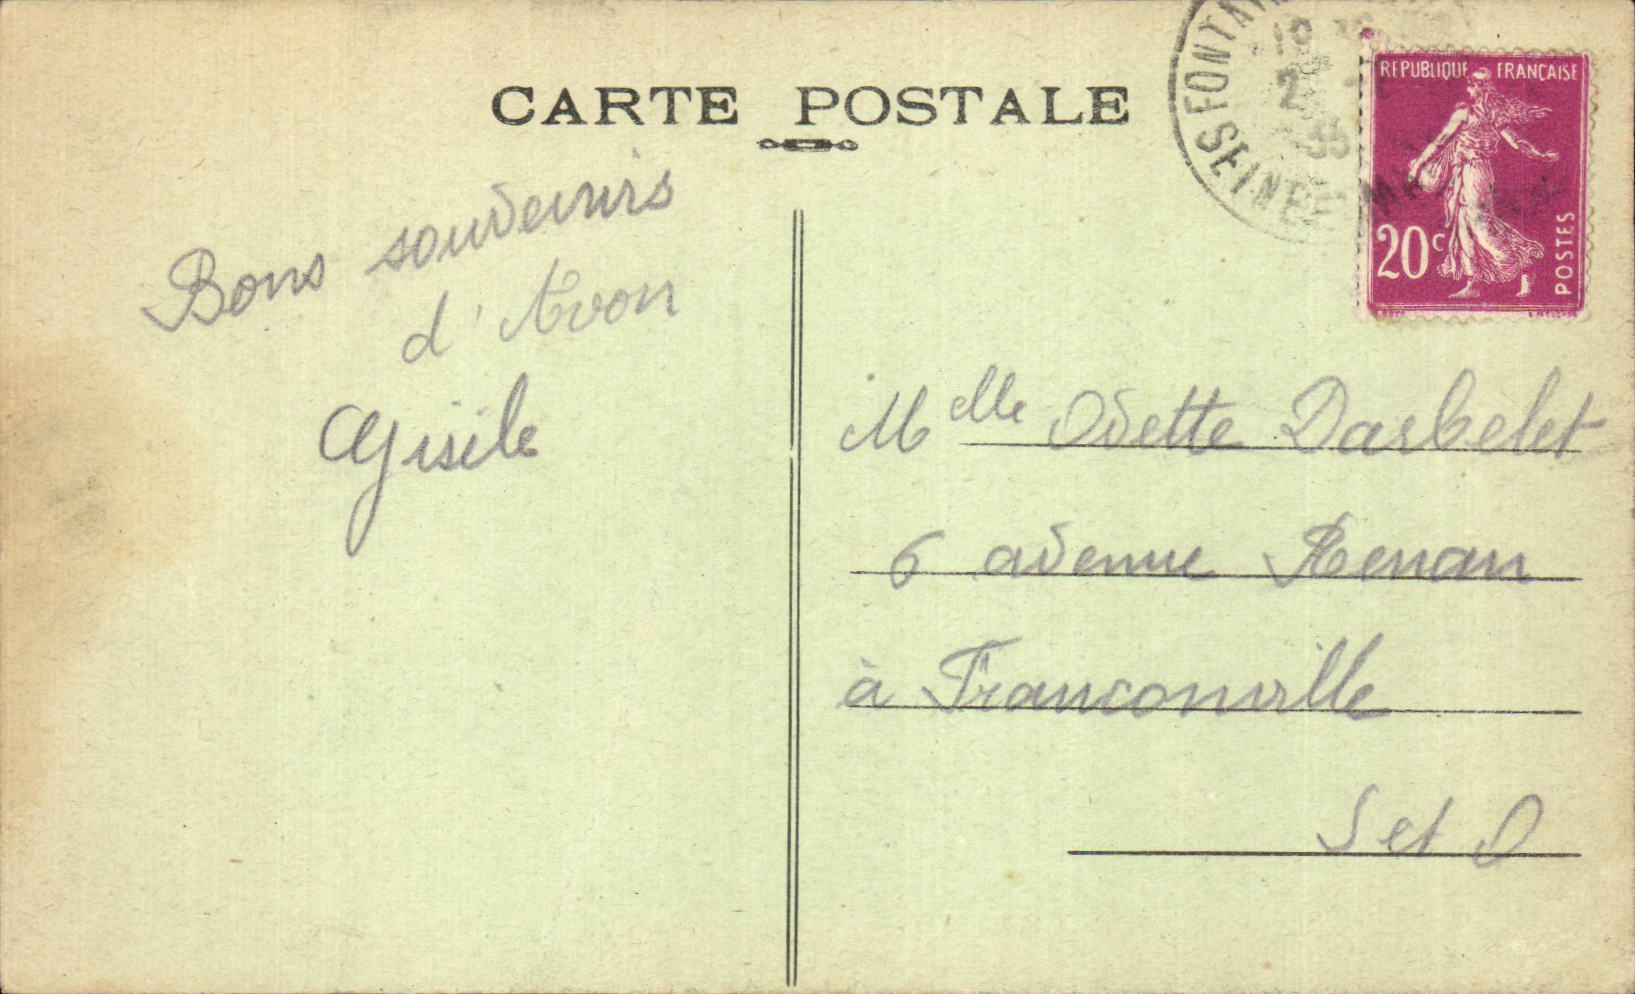 CARTE POSTALE
Bons souvenirs
d'Avon
Gisèle
SEINE ET
35
REPUBLIQUE FRANÇAISE
20c
POSTES
Melle Odette Darbelet
6 avenue Renan
à Franconville
S et O